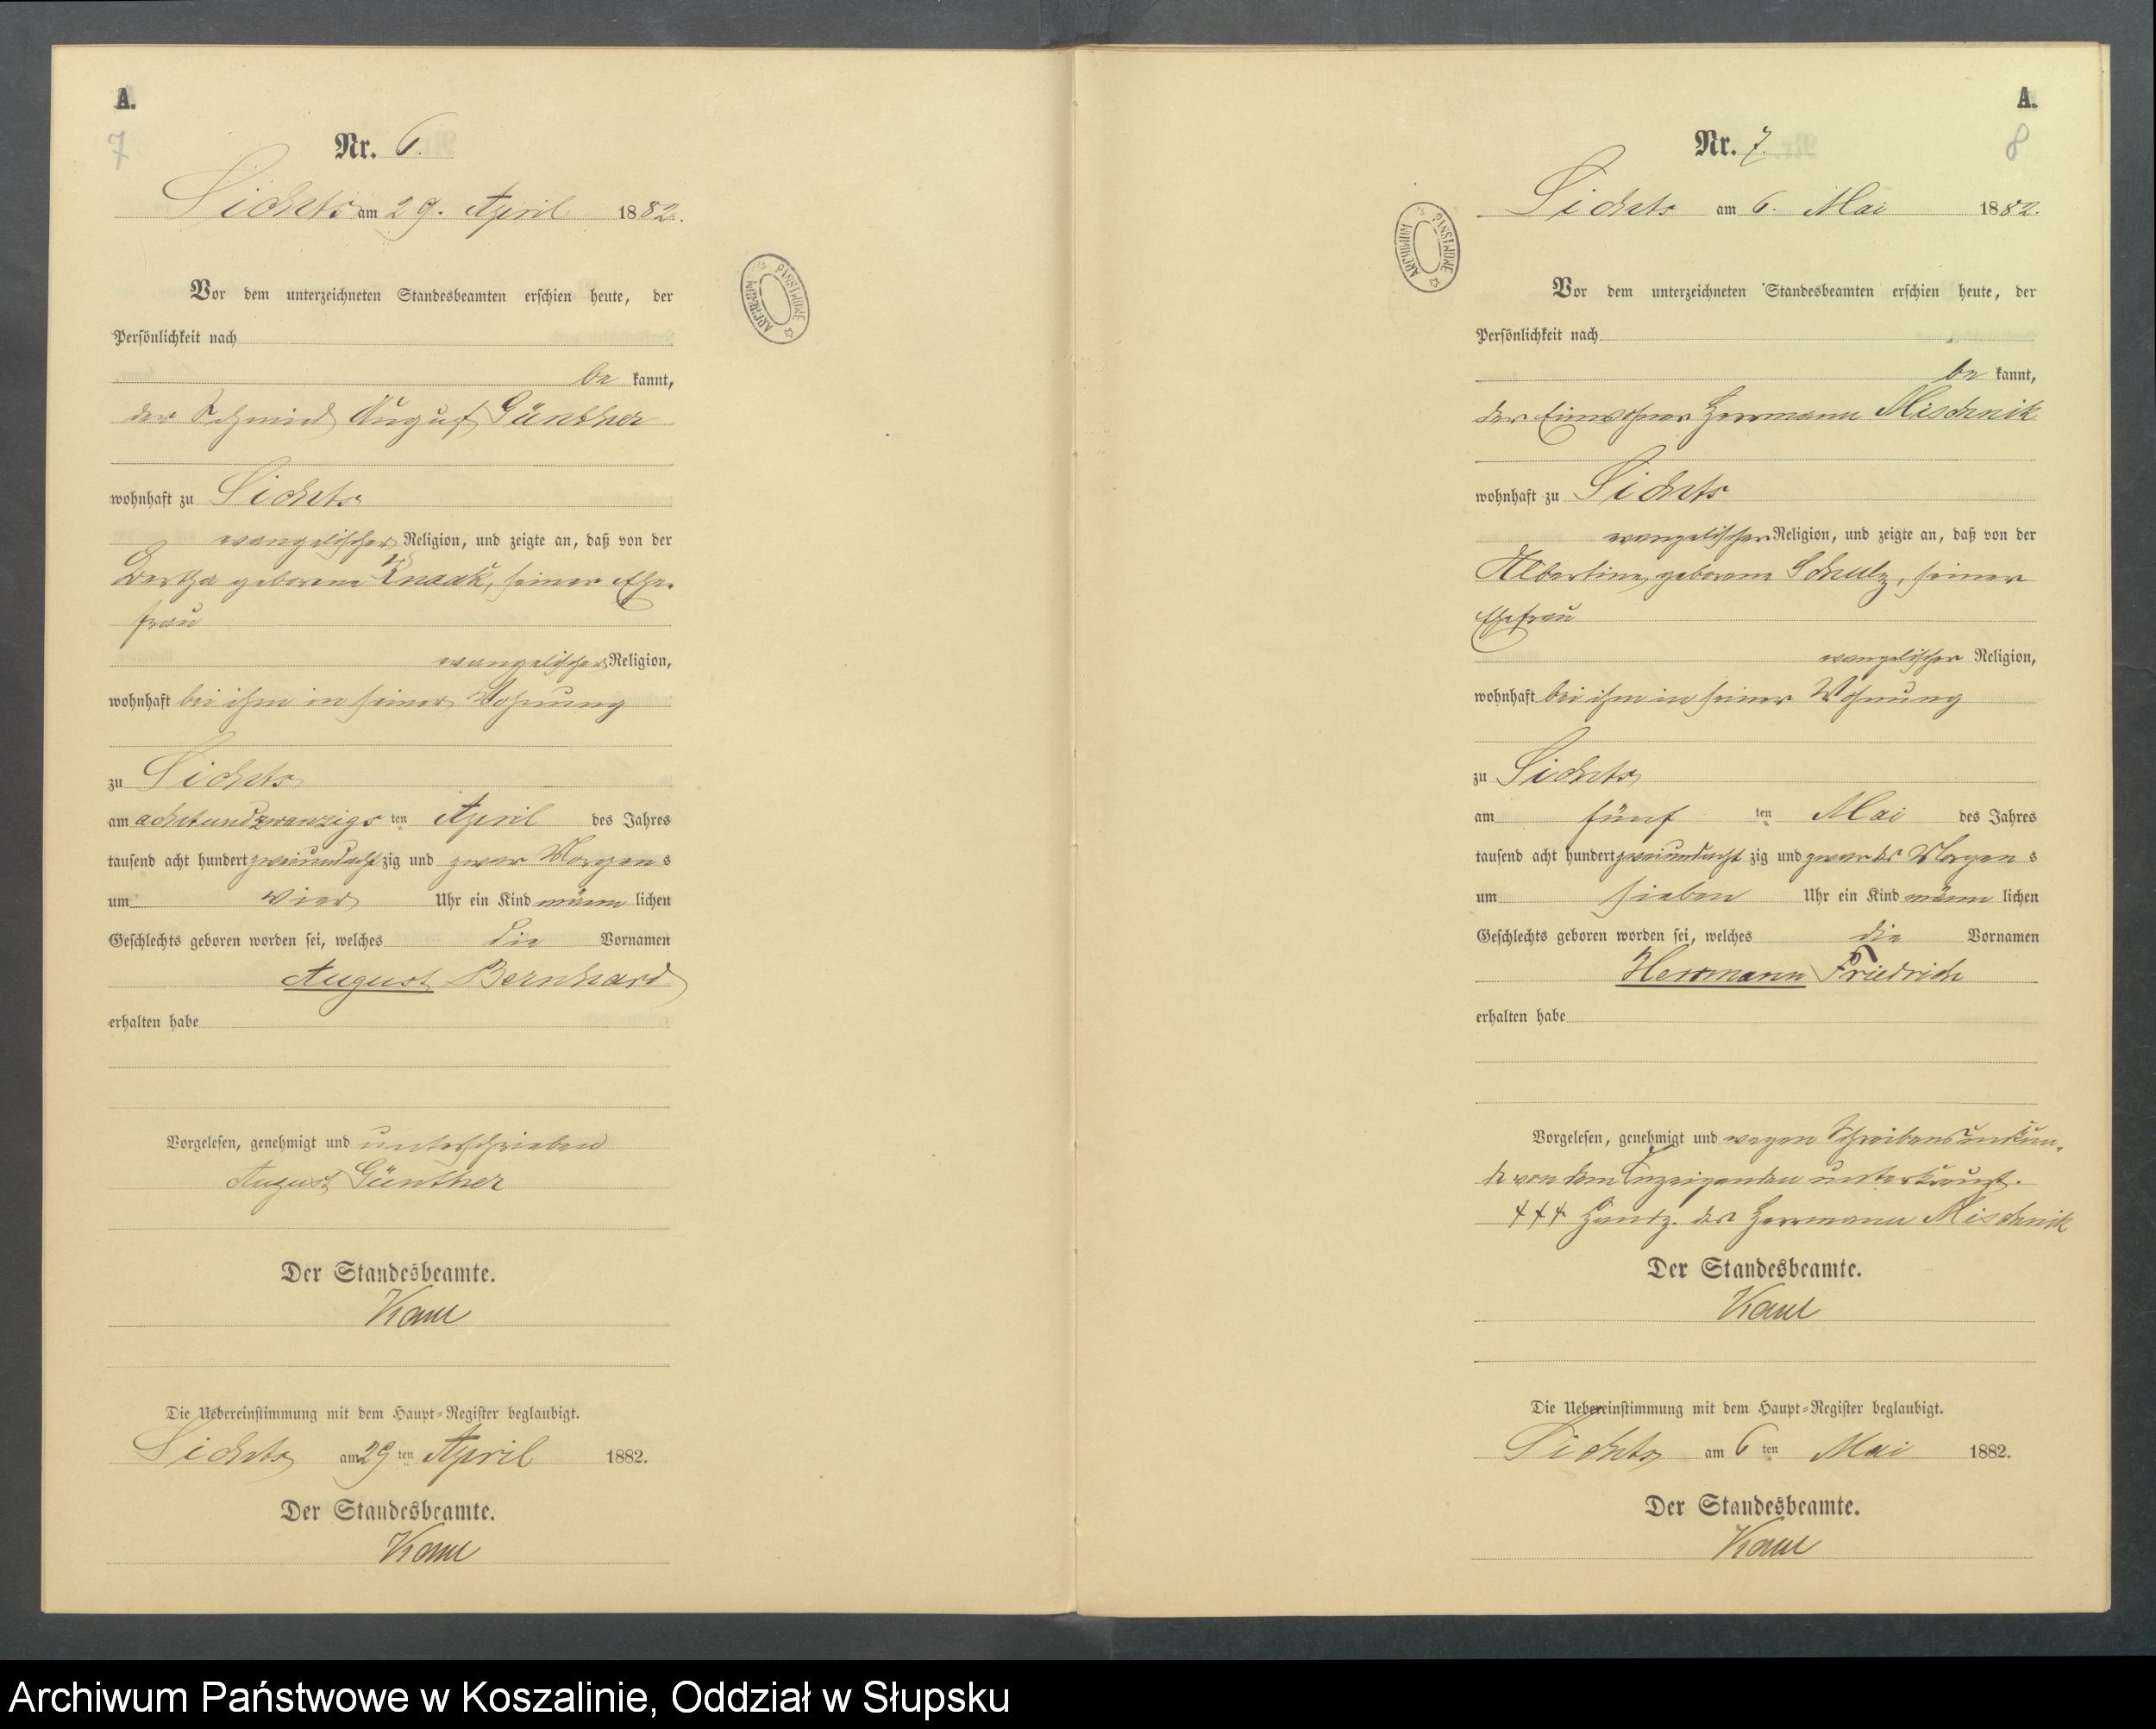 A.
7
Nr. 6.
Sichts am 29. April 1882.
Vor dem unterzeichneten Standesbeamten erschien heute, der
Persönlichkeit nach
be kannt,
der Schmied August Günther
wohnhaft zu Sichts
evangelischer Religion, und zeigte an, daß von der
Bertha geborene Knaak, seiner Ehe-
frau
evangelischer Religion,
wohnhaft bei ihm in seiner Wohnung
zu Sichts
am achtundzwanzigsten April des Jahres
tausend acht hundert zweiundachtzig und zwar Morgens
um vier Uhr ein Kind männlichen
Geschlechts geboren worden sei, welches die Vornamen
August Bernhard
erhalten habe
Vorgelesen, genehmigt und unterschrieben
August Günther
Der Standesbeamte.
Die Uebereinstimmung mit dem Haupt-Register beglaubigt.
Sichts am 29ten April 1882.
Der Standesbeamte.
ARCHIWUM PAŃSTWOWE
A.
8
Nr. 7.
Sichts am 6. Mai 1882.
Vor dem unterzeichneten Standesbeamten erschien heute, der
Persönlichkeit nach
be kannt,
der Einwohner Herrmann Mischnik
wohnhaft zu Sichts
evangelischer Religion, und zeigte an, daß von der
Albertine, geborene Schulz, seiner
Ehefrau
evangelischer Religion,
wohnhaft bei ihm in seiner Wohnung
zu Sichts
am fünften Mai des Jahres
tausend acht hundert zweiundachtzig und zwar des Morgens
um sieben Uhr ein Kind männlichen
Geschlechts geboren worden sei, welches die Vornamen
Herrmann Friedrich
erhalten habe
Vorgelesen, genehmigt und wegen Schreibensunkun-
de von dem Anzeigenden unterkreuzt.
+++ Handz. des Herrmann Mischnik
Der Standesbeamte.
Die Uebereinstimmung mit dem Haupt-Register beglaubigt.
Sichts am 6ten Mai 1882.
Der Standesbeamte.
ARCHIWUM PAŃSTWOWE
Archiwum Państwowe w Koszalinie, Oddział w Słupsku